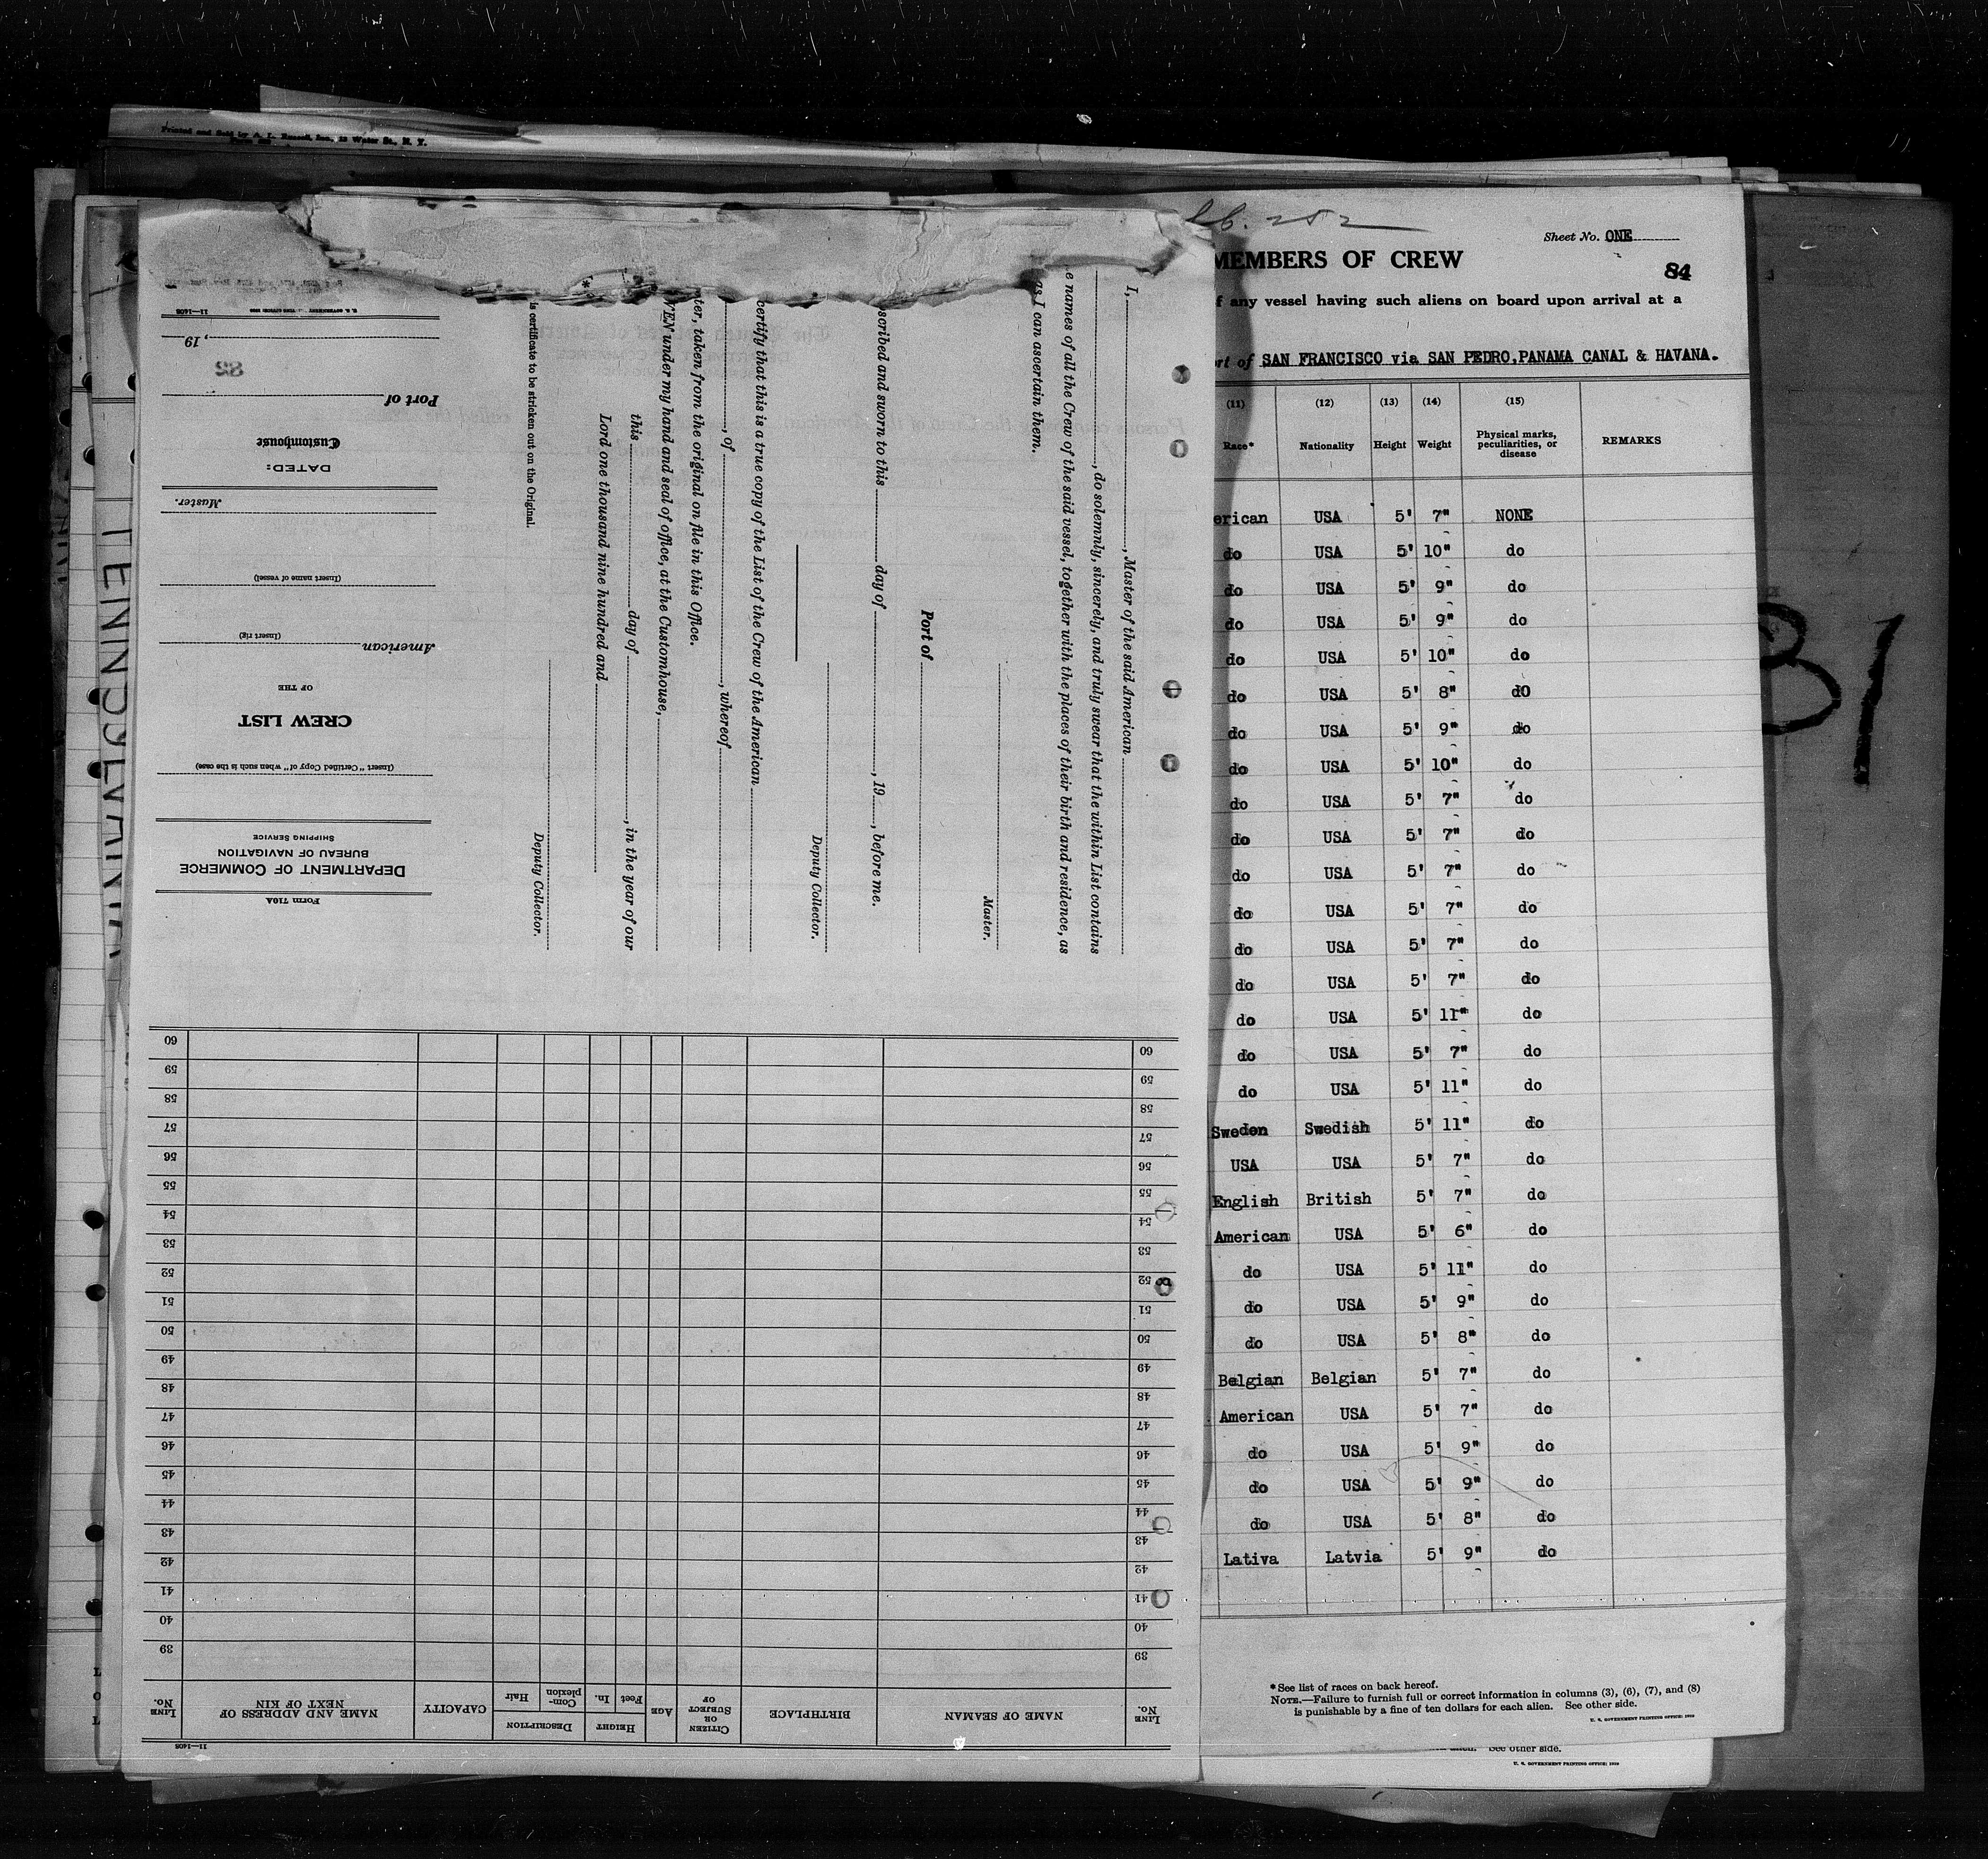 Printed and Sold by A. L. Russell, Inc., 13 Water St., N. Y.
Sheet No. ONE
MEMBERS OF CREW
84
f any vessel having such aliens on board upon arrival at a
rt of SAN FRANCISCO via SAN PEDRO, PANAMA CANAL & HAVANA.
(11) (12) (13) (14) (15)
Race* Nationality Height Weight Physical marks, peculiarities, or disease REMARKS
erican USA 5' 7" NONE
do USA 5' 10" do
do USA 5' 9" do
do USA 5' 9" do
do USA 5' 10" do
do USA 5' 8" dO
do USA 5' 9" do
do USA 5' 10" do
do USA 5' 7" do
do USA 5' 7" do
do USA 5' 7" do
do USA 5' 7" do
do USA 5' 7" do
do USA 5' 7" do
do USA 5' 11" do
do USA 5' 7" do
do USA 5' 11" do
Sweden Swedish 5' 11" do
USA USA 5' 7" do
English British 5' 7" do
American USA 5' 6" do
do USA 5' 11" do
do USA 5' 9" do
do USA 5' 8" do
Belgian Belgian 5' 7" do
American USA 5' 7" do
do USA 5' 9" do
do USA 5' 9" do
do USA 5' 8" do
Lativa Latvia 5' 9" do
*See list of races on back hereof.
NOTE.—Failure to furnish full or correct information in columns (3), (6), (7), and (8)
is punishable by a fine of ten dollars for each alien. See other side.
U. S. GOVERNMENT PRINTING OFFICE:
See other side.
U. S. GOVERNMENT PRINTING OFFICE:
I, , Master of the said American
, do solemnly, sincerely, and truly swear that the within List contains
e names of all the Crew of the said vessel, together with the places of their birth and residence, as
as I can ascertain them.
Master.
Port of
scribed and sworn to this day of , 19 , before me.
Deputy Collector.
certify that this is a true copy of the List of the Crew of the American
, of , whereof
ter, taken from the original on file in this Office.
VEN under my hand and seal of office, at the Customhouse,
this day of , in the year of our
Lord one thousand nine hundred and
Deputy Collector.
is certificate to be stricken out on the Original.
Form 710A
DEPARTMENT OF COMMERCE
BUREAU OF NAVIGATION
SHIPPING SERVICE
(Insert "Certified Copy of" when such is the case)
CREW LIST
OF THE
American
(Insert rig)
(Insert name of vessel)
Master.
DATED:
Customhouse
Port of
, 19
11—1408
LINE No. NAME OF SEAMAN BIRTHPLACE CITIZEN OR SUBJECT OF AGE HEIGHT Feet In. DESCRIPTION Complexion Hair CAPACITY NAME AND ADDRESS OF NEXT OF KIN LINE No.
39 39
40 40
41 41
42 42
43 43
44 44
45 45
46 46
47 47
48 48
49 49
50 50
51 51
52 52
53 53
54 54
55 55
56 56
57 57
58 58
59 59
60 60
11—1408